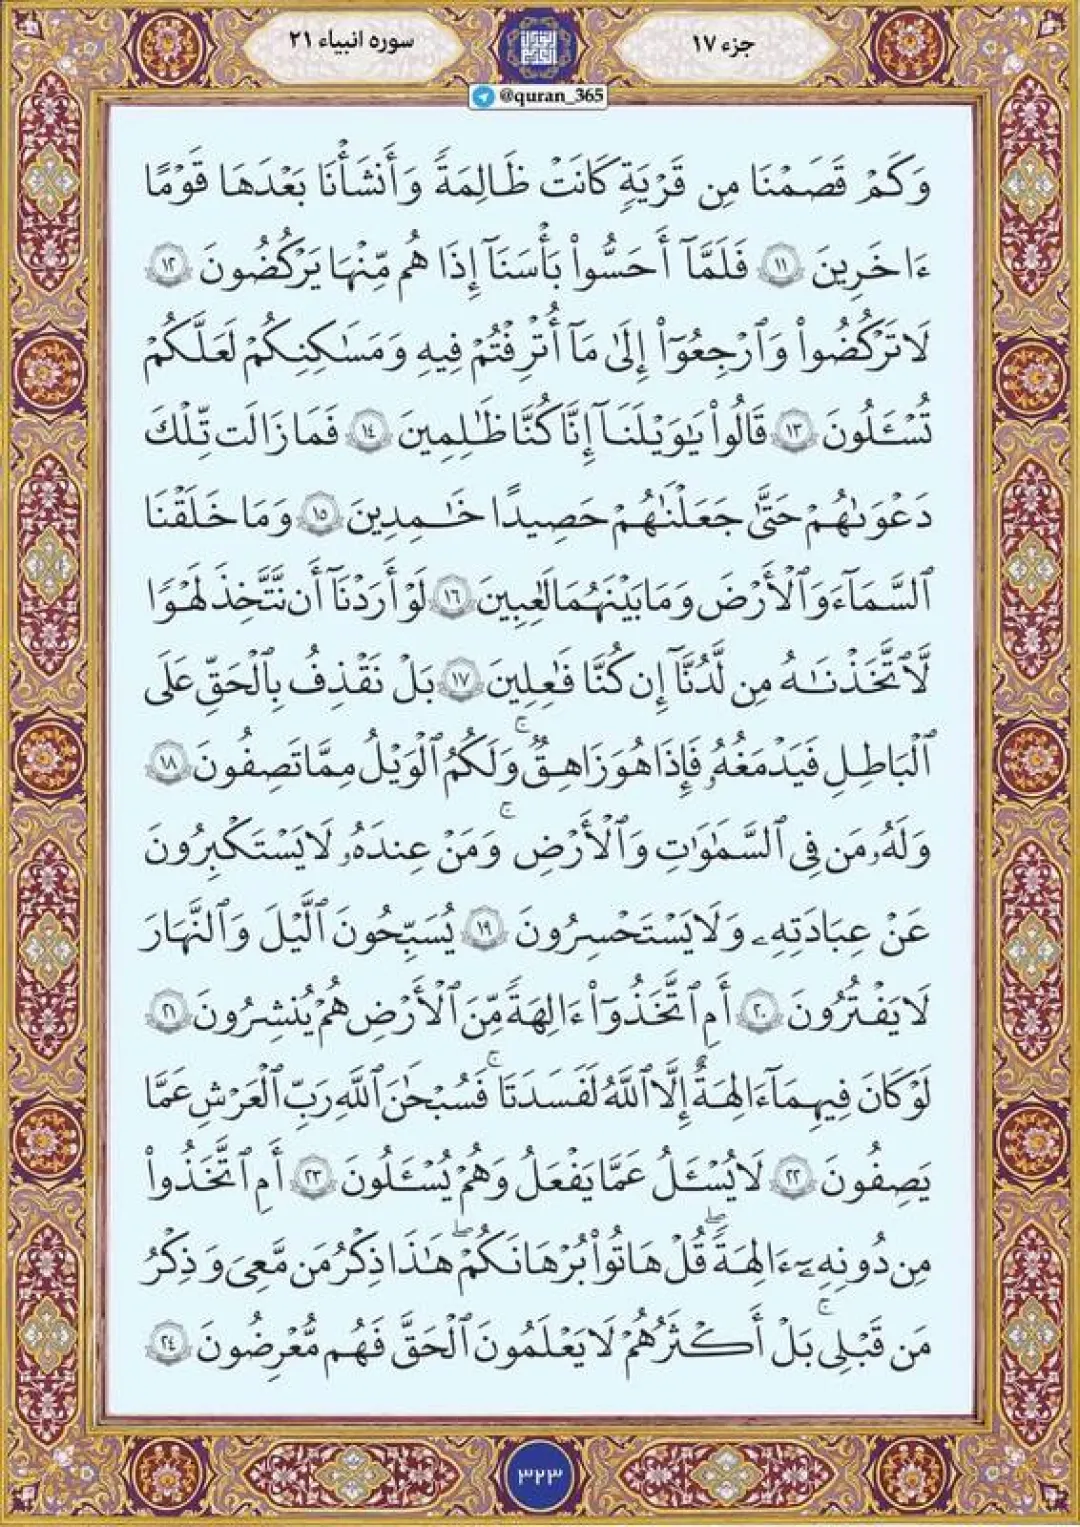 جزء ١٧
سوره انبیاء ٢١
@quran_365
وَكَمْ قَصَمْنَا مِن قَرْيَةٍ كَانَتْ ظَالِمَةً وَأَنشَأْنَا بَعْدَهَا قَوْمًا
ءَاخَرِينَ ١١ فَلَمَّآ أَحَسُّوا۟ بَأْسَنَآ إِذَا هُم مِّنْهَا يَرْكُضُونَ ١٢
لَا تَرْكُضُوا۟ وَٱرْجِعُوٓا۟ إِلَىٰ مَآ أُتْرِفْتُمْ فِيهِ وَمَسَـٰكِنِكُمْ لَعَلَّكُمْ
تُسْـَٔلُونَ ١٣ قَالُوا۟ يَـٰوَيْلَنَآ إِنَّا كُنَّا ظَـٰلِمِينَ ١٤ فَمَا زَالَت تِّلْكَ
دَعْوَىٰهُمْ حَتَّىٰ جَعَلْنَـٰهُمْ حَصِيدًا خَـٰمِدِينَ ١٥ وَمَا خَلَقْنَا
ٱلسَّمَآءَ وَٱلْأَرْضَ وَمَا بَيْنَهُمَا لَـٰعِبِينَ ١٦ لَوْ أَرَدْنَآ أَن نَّتَّخِذَ لَهْوًا
لَّٱتَّخَذْنَـٰهُ مِن لَّدُنَّآ إِن كُنَّا فَـٰعِلِينَ ١٧ بَلْ نَقْذِفُ بِٱلْحَقِّ عَلَى
ٱلْبَـٰطِلِ فَيَدْمَغُهُۥ فَإِذَا هُوَ زَاهِقٌ ۚ وَلَكُمُ ٱلْوَيْلُ مِمَّا تَصِفُونَ ١٨
وَلَهُۥ مَن فِى ٱلسَّمَـٰوَٰتِ وَٱلْأَرْضِ ۚ وَمَنْ عِندَهُۥ لَا يَسْتَكْبِرُونَ
عَنْ عِبَادَتِهِۦ وَلَا يَسْتَحْسِرُونَ ١٩ يُسَبِّحُونَ ٱلَّيْلَ وَٱلنَّهَارَ
لَا يَفْتُرُونَ ٢٠ أَمِ ٱتَّخَذُوٓا۟ ءَالِهَةً مِّنَ ٱلْأَرْضِ هُمْ يُنشِرُونَ ٢١
لَوْ كَانَ فِيهِمَآ ءَالِهَةٌ إِلَّا ٱللَّهُ لَفَسَدَتَا ۚ فَسُبْحَـٰنَ ٱللَّهِ رَبِّ ٱلْعَرْشِ عَمَّا
يَصِفُونَ ٢٢ لَا يُسْـَٔلُ عَمَّا يَفْعَلُ وَهُمْ يُسْـَٔلُونَ ٢٣ أَمِ ٱتَّخَذُوا۟
مِن دُونِهِۦٓ ءَالِهَةً ۖ قُلْ هَاتُوا۟ بُرْهَانَكُمْ ۖ هَـٰذَا ذِكْرُ مَن مَّعِىَ وَذِكْرُ
مَن قَبْلِى ۚ بَلْ أَكْثَرُهُمْ لَا يَعْلَمُونَ ٱلْحَقَّ فَهُم مُّعْرِضُونَ ٢٤
٣٢٣